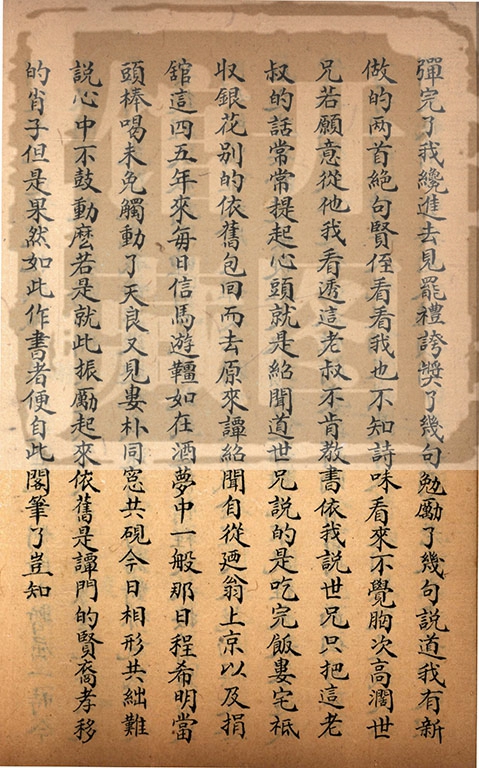 彈完了我纔進去見罷禮誇獎了幾句勉勵了幾句説道我有新
做的两首絶句賢侄看看我也不知詩味看來不覺胸次高濶世
兄若願意從他我看透這老叔不肯教書依我説世兄只把這老
叔的話常常提起心頭就是紹聞道世兄説的是吃完飯婁宅祗
收銀花别的依舊包回而去原來譚紹聞自從廼翁上京以及捐
舘這四五年來每日信馬遊韁如在酒夢中一般那日程希明當
頭棒喝未免觸動了天良又見婁朴同窓共硯今日相形共絀難
説心中不鼓動麽若是就此振勵起來依舊是譚門的賢裔孝移
的肖子但是果然如此作書者便自此閣筆了豈知